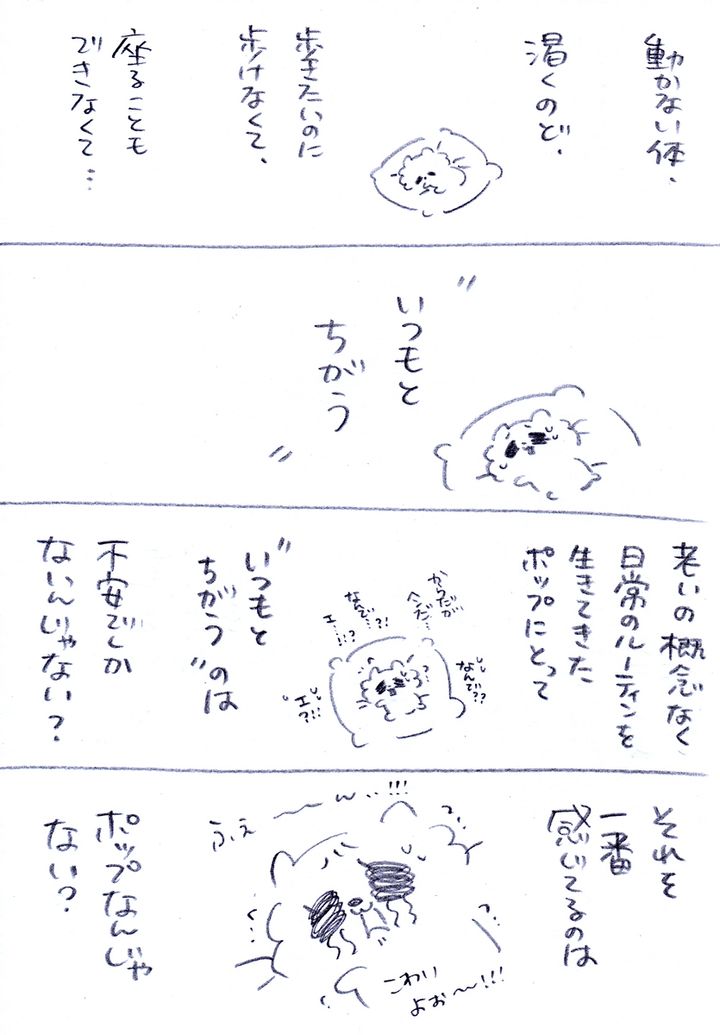 動かない体、
渇くのど、
歩きたいのに
歩けなくて、
座ることも
できなくて…
"いつもと
ちがう"
老いの概念なく
日常のルーティンを
生きてきた
ポップにとって
からだが
へんだ…
なんで…?!
エ…!?
なんで!??
エ?!!
"いつもと
ちがう"のは
不安でしか
ないんじゃない?
それを
一番
感じてるのは
ふぇ〜〜ん…!!!
こわい
よぉ〜〜!!!
ポップなんじゃ
ない?